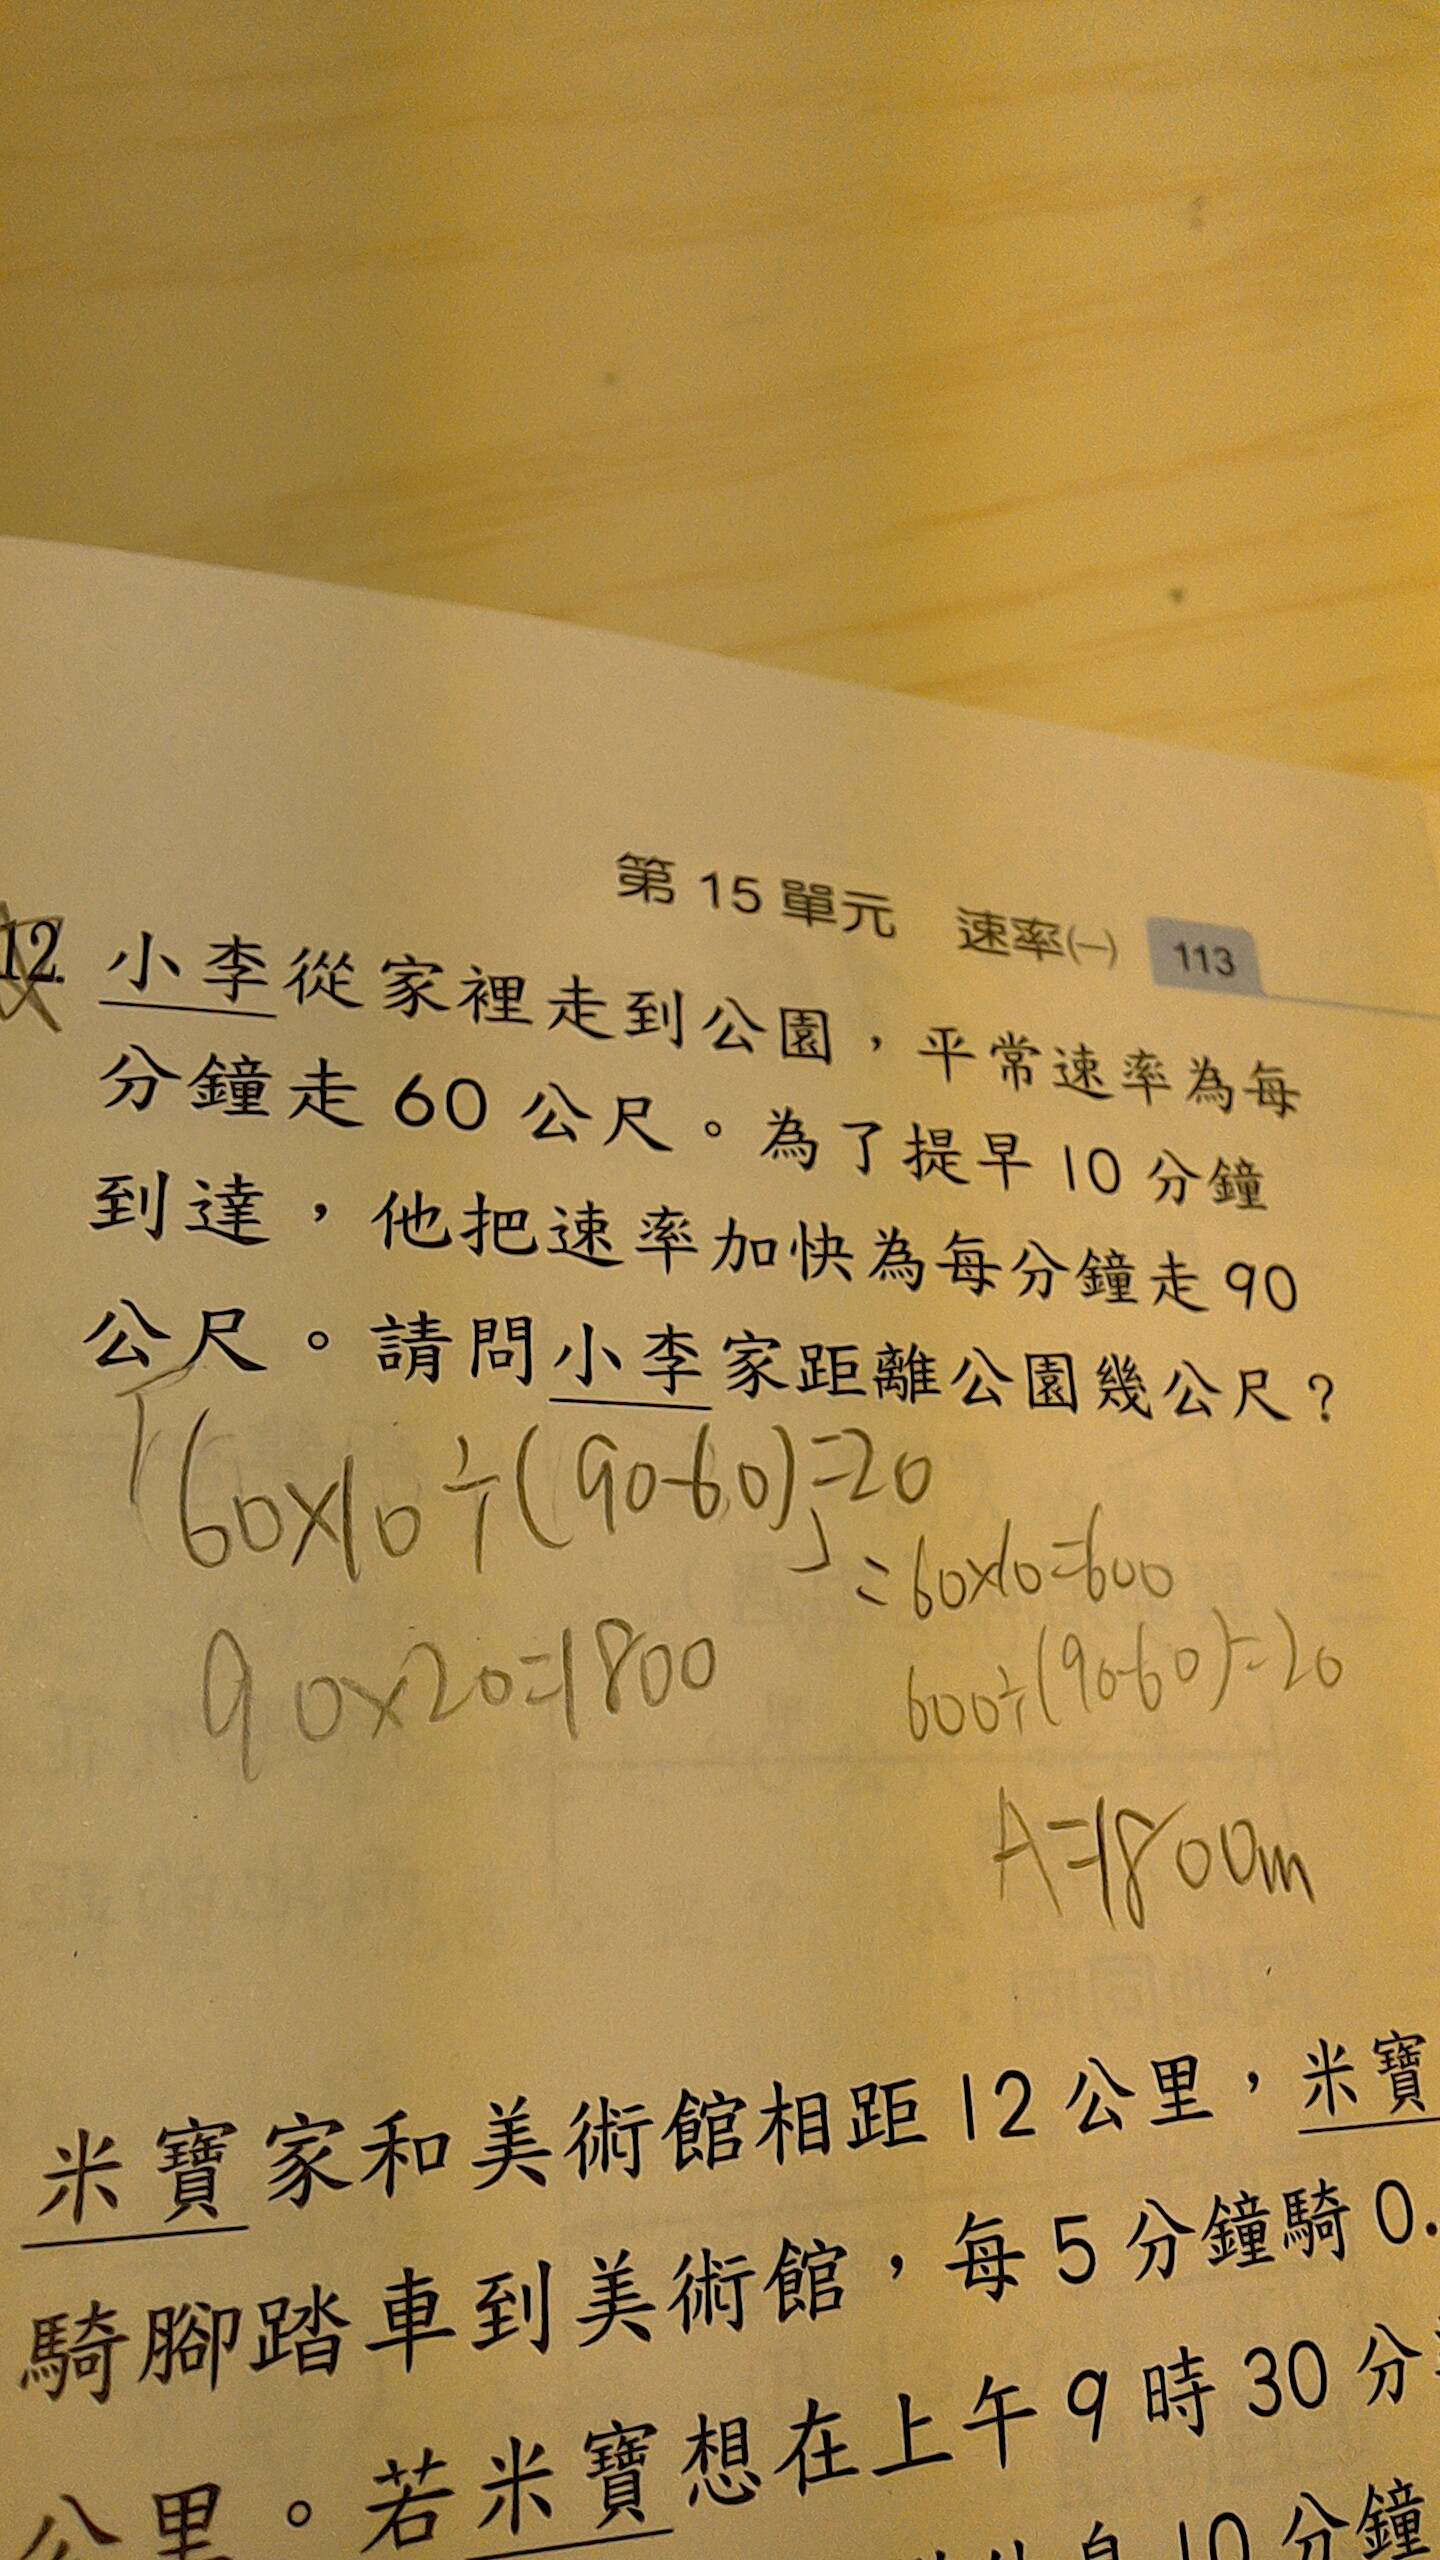 第 15 單元 速率(一) 113
12. 小李從家裡走到公園，平常速率為每
分鐘走 60 公尺。為了提早 10 分鐘
到達，他把速率加快為每分鐘走 90
公尺。請問小李家距離公園幾公尺？
60×10÷(90-60)=20
=60×10=600
90×20=1800
600÷(90-60)=20
A=1800m
米寶家和美術館相距 12 公里，米寶
騎腳踏車到美術館，每 5 分鐘騎 0.
公里。若米寶想在上午 9 時 30 分
10 分鐘